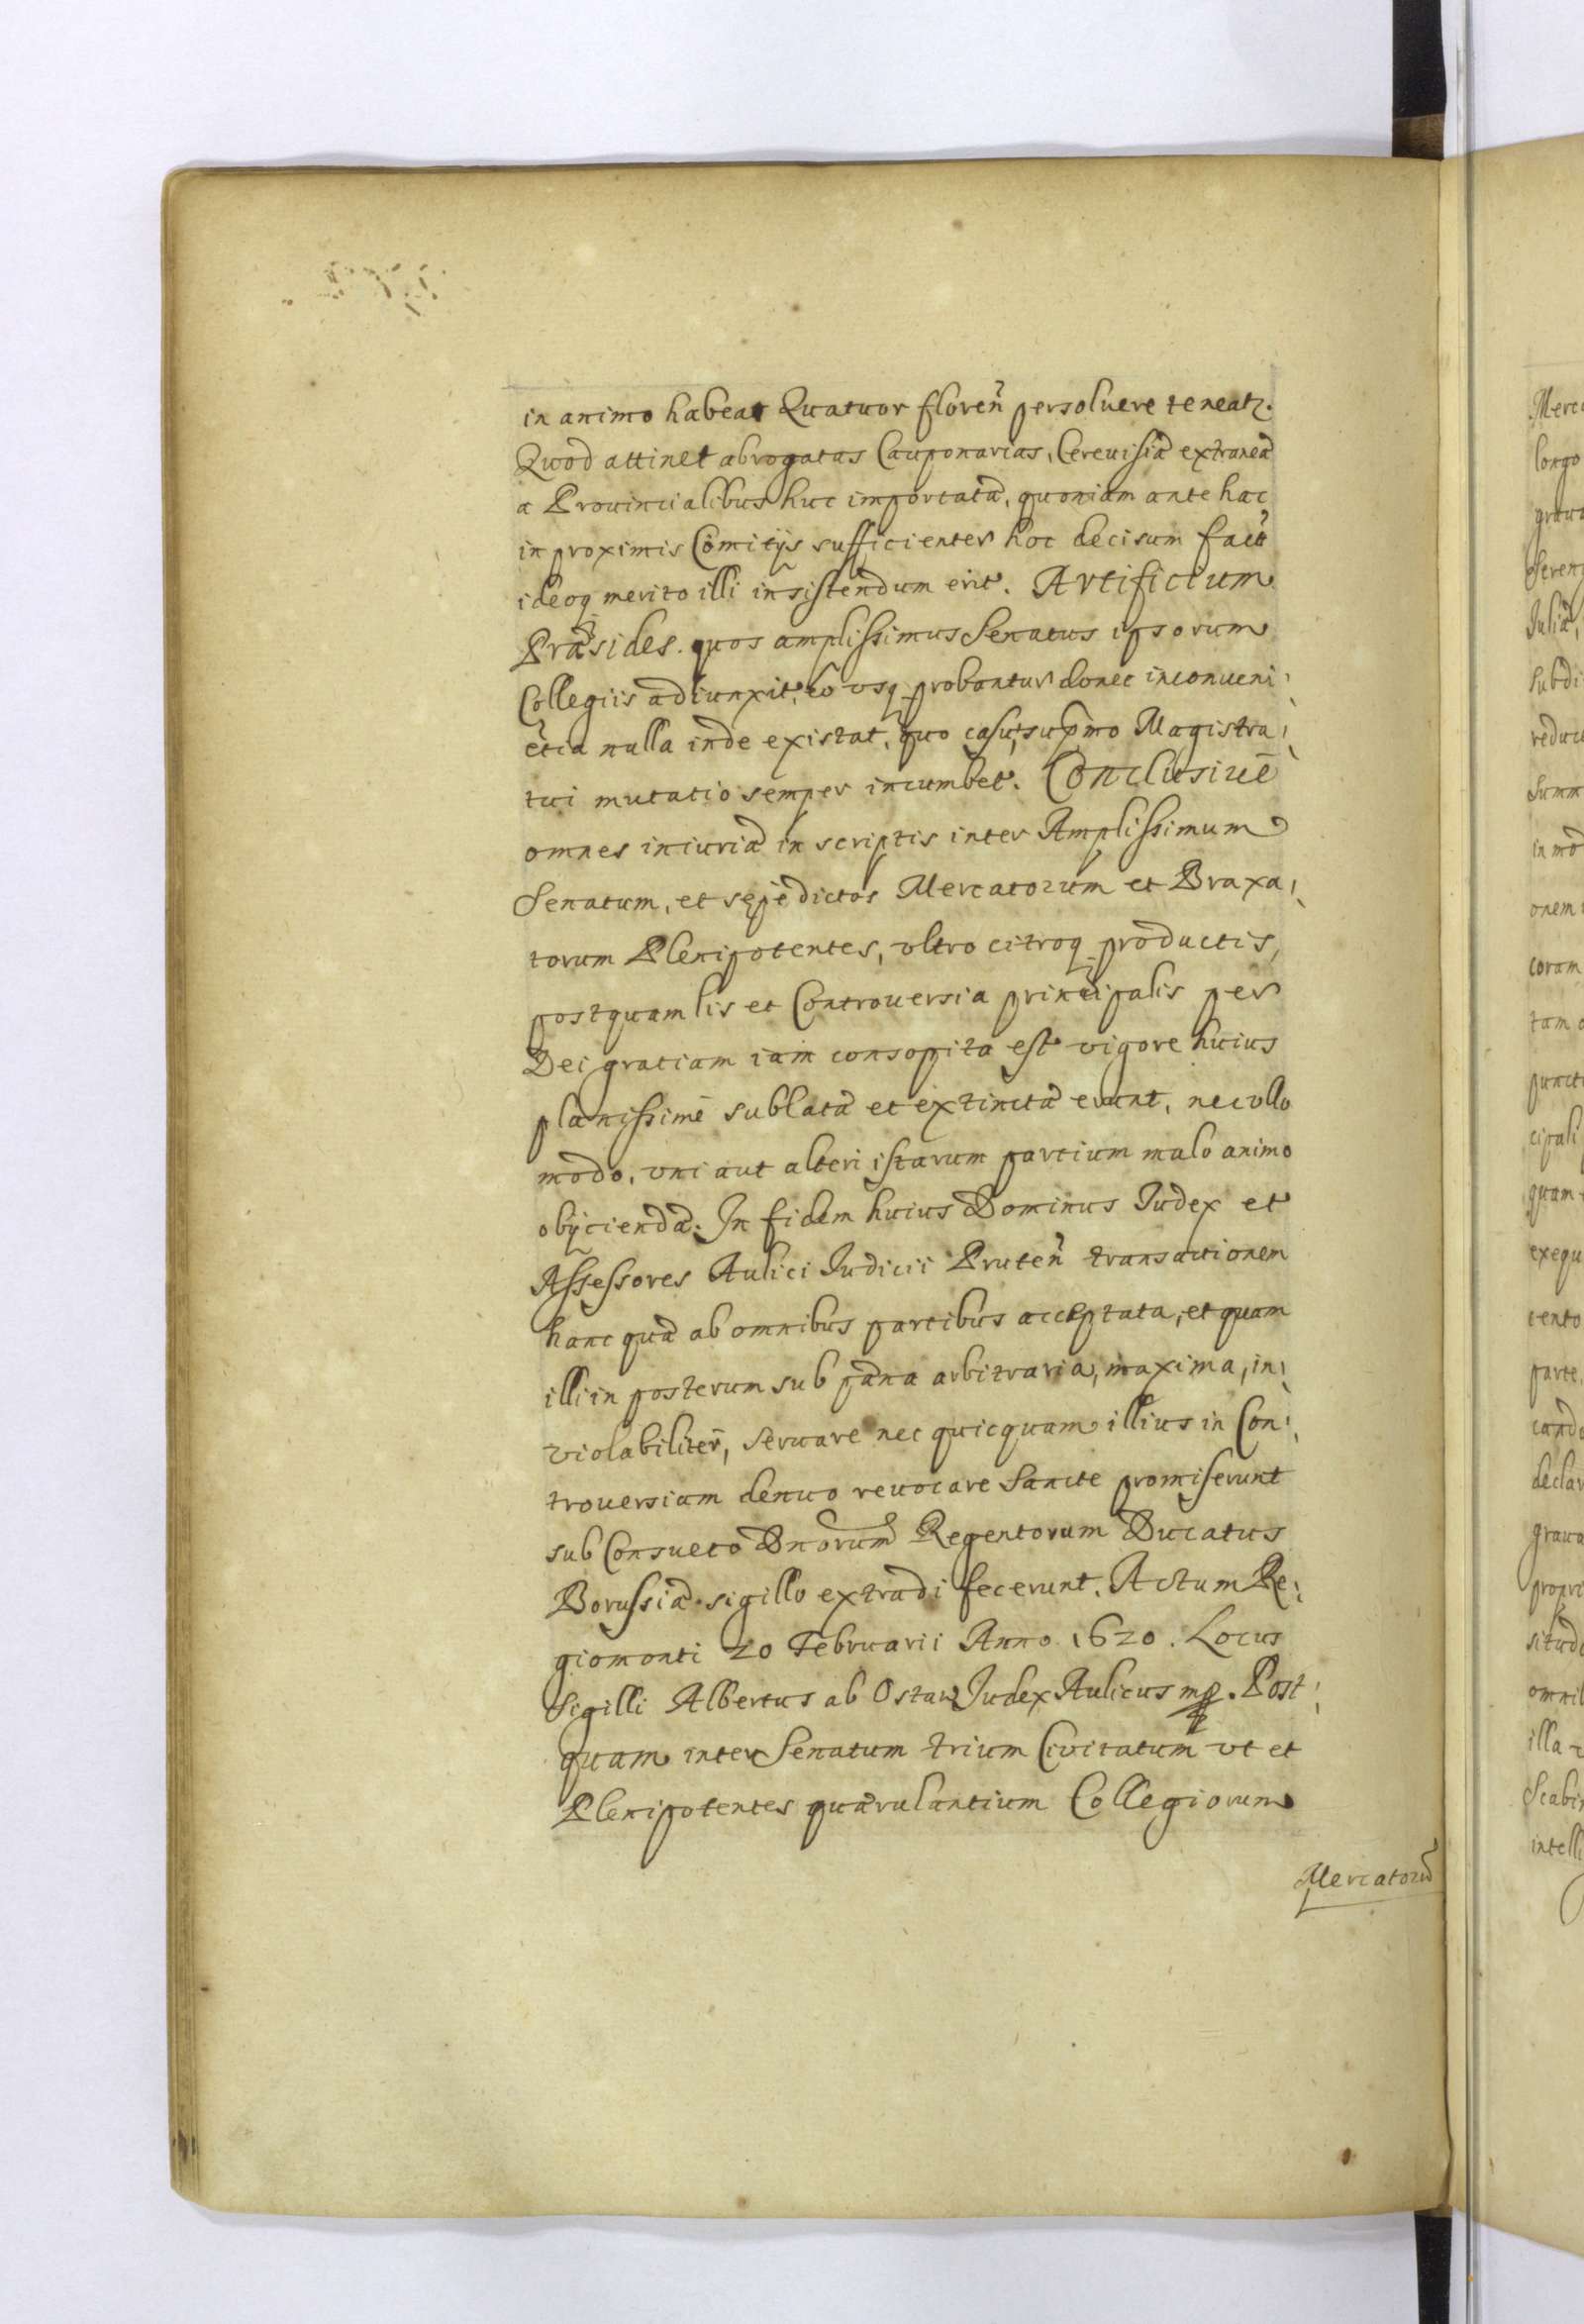 in animo habeat Quatuor floren̄ persoluere teneatz.
Quod attinet abrogatas Cauponarias, Cereuisiā extraneā
a Prouincialibus huc importatā, quoniam ante hac
in proximis Comitijs sufficienter hoc decisum fuit
ideoq merito illi insistendum erit. Artificium
Præsides. quos amplissimus Senatus ipsorum
Collegiis adiunxit, eo vsq probantur donec inconueni:
entia nulla inde existat, quo casu, supmo Magistra:
tui mutatio semper incumbet. Conclusiuè
omnes iniuriæ in scriptis inter Amplissimum
Senatum, et sępè dictos Mercatorum et Braxa:
torum Plenipotentes, vltro citroq productis,
postquam lis et Controuersia principalis per
Dei gratiam iam consopita est vigore huius
planissimè sublatæ et extinctæ erunt, nec vllo
modo, vni aut alteri istarum partium malo animo
obijciendæ. In fidem huius Dominus Iudex et
Assessores Aulici Iudicii Pruten̄ transactionem
hanc quæ ab omnibus partibus acceptata, et quam
illi in posterum sub pæna arbitraria, maxima, in:
violabiliter, seruare nec quicquam illius in Con:
trouersiam denuo reuocare sancte promiserunt
sub Consueto Dnorum Regentorum Ducatus
Borussiæ sigillo extradi fecerunt. Actum Re:
giomonti 20 Februarii Anno 1620. Locus
Sigilli Albertus ab Ostaw Iudex Aulicus mp. Post:
quam inter Senatum trium Civitatum vt et
Plenipotentes quærulantium Collegiorum
Mercatorū